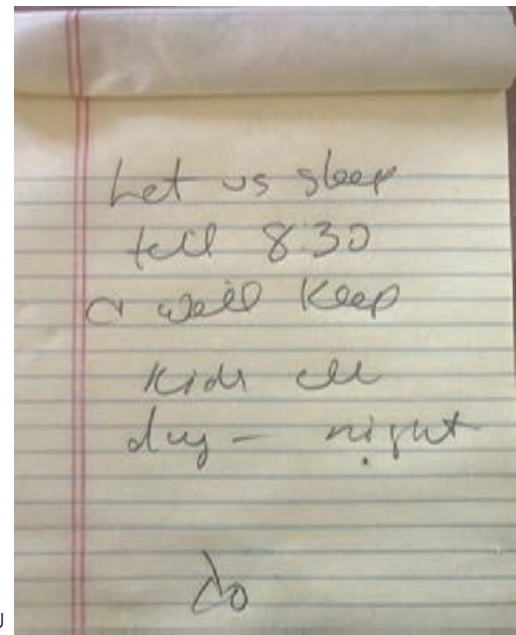 Let us sleep
till 8.30
& will keep
Kids all
day - night